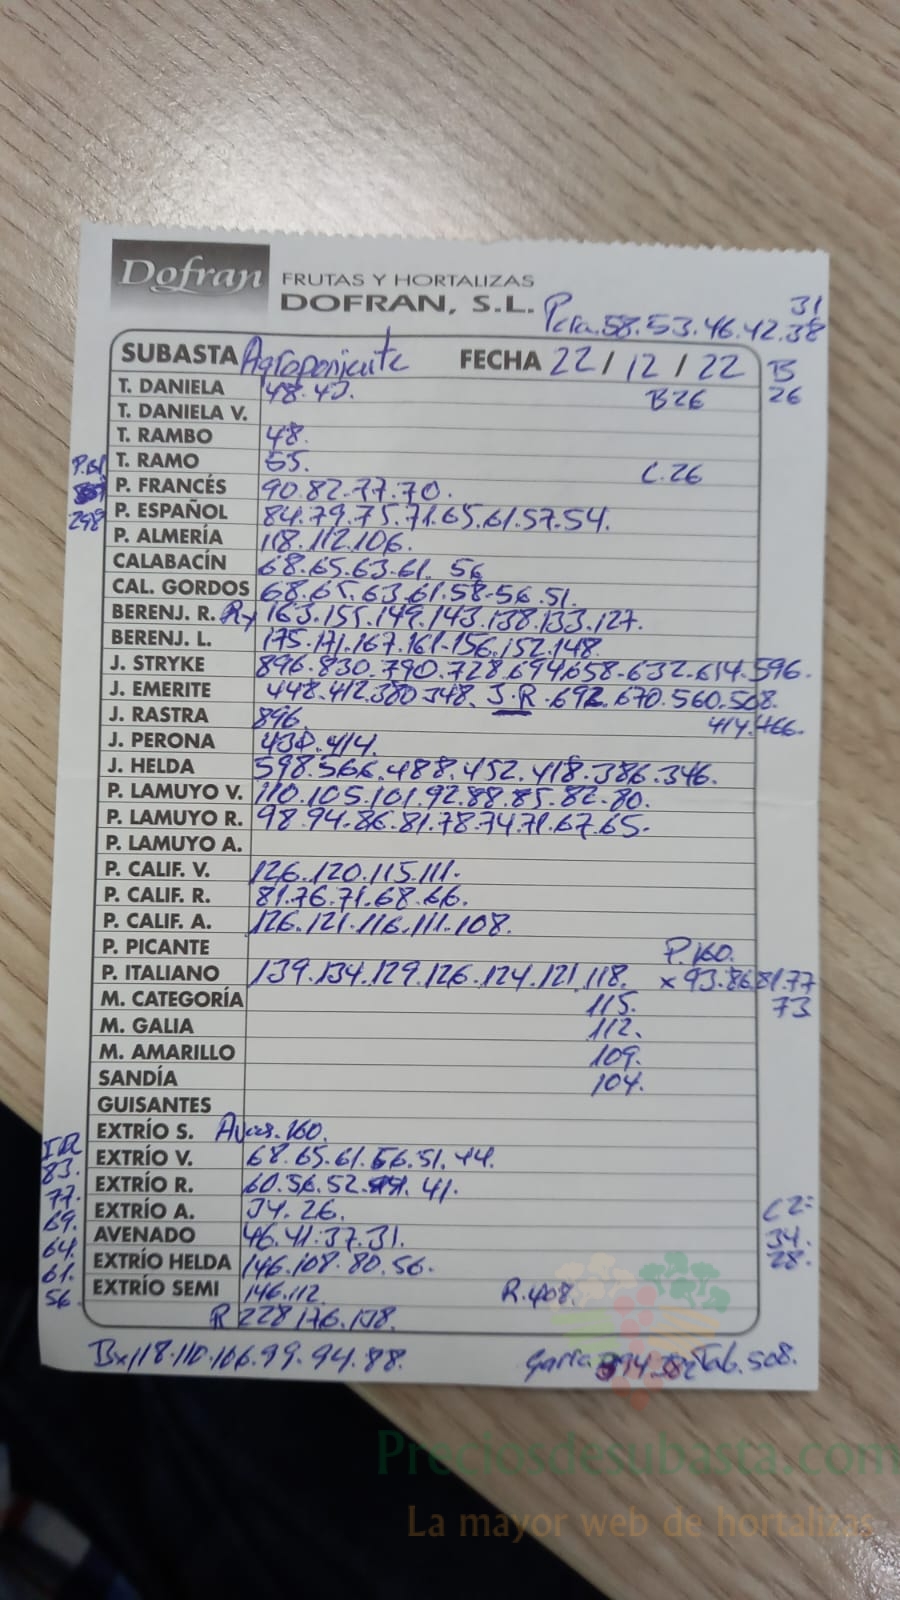 Dofran FRUTAS Y HORTALIZAS
DOFRAN, S.L.
31
Pera.58.53.46.42.38
SUBASTA Agroponiente FECHA 22/12/22 B
T. DANIELA 48.42. B26 26
T. DANIELA V.
T. RAMBO 48.
T. RAMO 55. C.26
P. FRANCÉS 90.82.77.70.
298 P. ESPAÑOL 84.79.75.71.65.61.57.54.
P. ALMERÍA 118.112.106.
CALABACÍN 68.65.63.61. 56
CAL. GORDOS 68.65.63.61.58.56.51.
BERENJ. R. Rx 163.155.149.143.138.133.127.
BERENJ. L. 175.171.167.161.156.152.148.
J. STRYKE 896.830.790.728.694.658.632.614.596.
J. EMERITE 448.412.380.348. J.R.692.670.560.508.
J. RASTRA 896. 414.466.
J. PERONA 430.414.
J. HELDA 598.566.488.452.418.386.346.
P. LAMUYO V. 110.105.101.92.88.85.82.80.
P. LAMUYO R. 98.94.86.81.78.74.71.67.65.
P. LAMUYO A.
P. CALIF. V. 126.120.115.111.
P. CALIF. R. 81.76.71.68.66.
P. CALIF. A. 126.121.116.111.108.
P. PICANTE P.160.
P. ITALIANO 139.134.129.126.124.121.118. x 93.86.81.77
M. CATEGORÍA 115. 73
M. GALIA 112.
M. AMARILLO 109.
SANDÍA 104.
GUISANTES
EXTRÍO S. 160.
EXTRÍO V. 68.65.61.56.51.44.
83. EXTRÍO R. 60.56.52. 41.
77.
69. EXTRÍO A. 34.26. C2=
64. AVENADO 46.41.37.31. 34.
61. EXTRÍO HELDA 146.108.80.56. 28.
56. EXTRÍO SEMI 146.112. R.408.
R 228.176.138.
Bx 118.110.106.99.94.88. Garra 394.382 Tab.508.
Preciosdesubasta.com
La mayor web de hortalizas